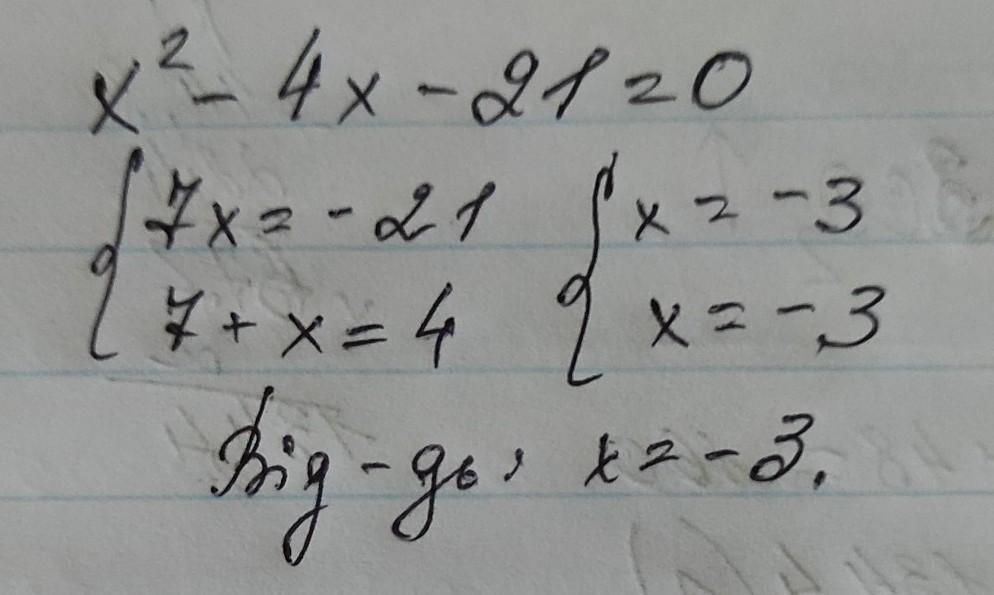 x² - 4x - 21 = 0
{ 7x = -21 { x = -3
{ 7 + x = 4 { x = -3
Від-дь, x = -3.